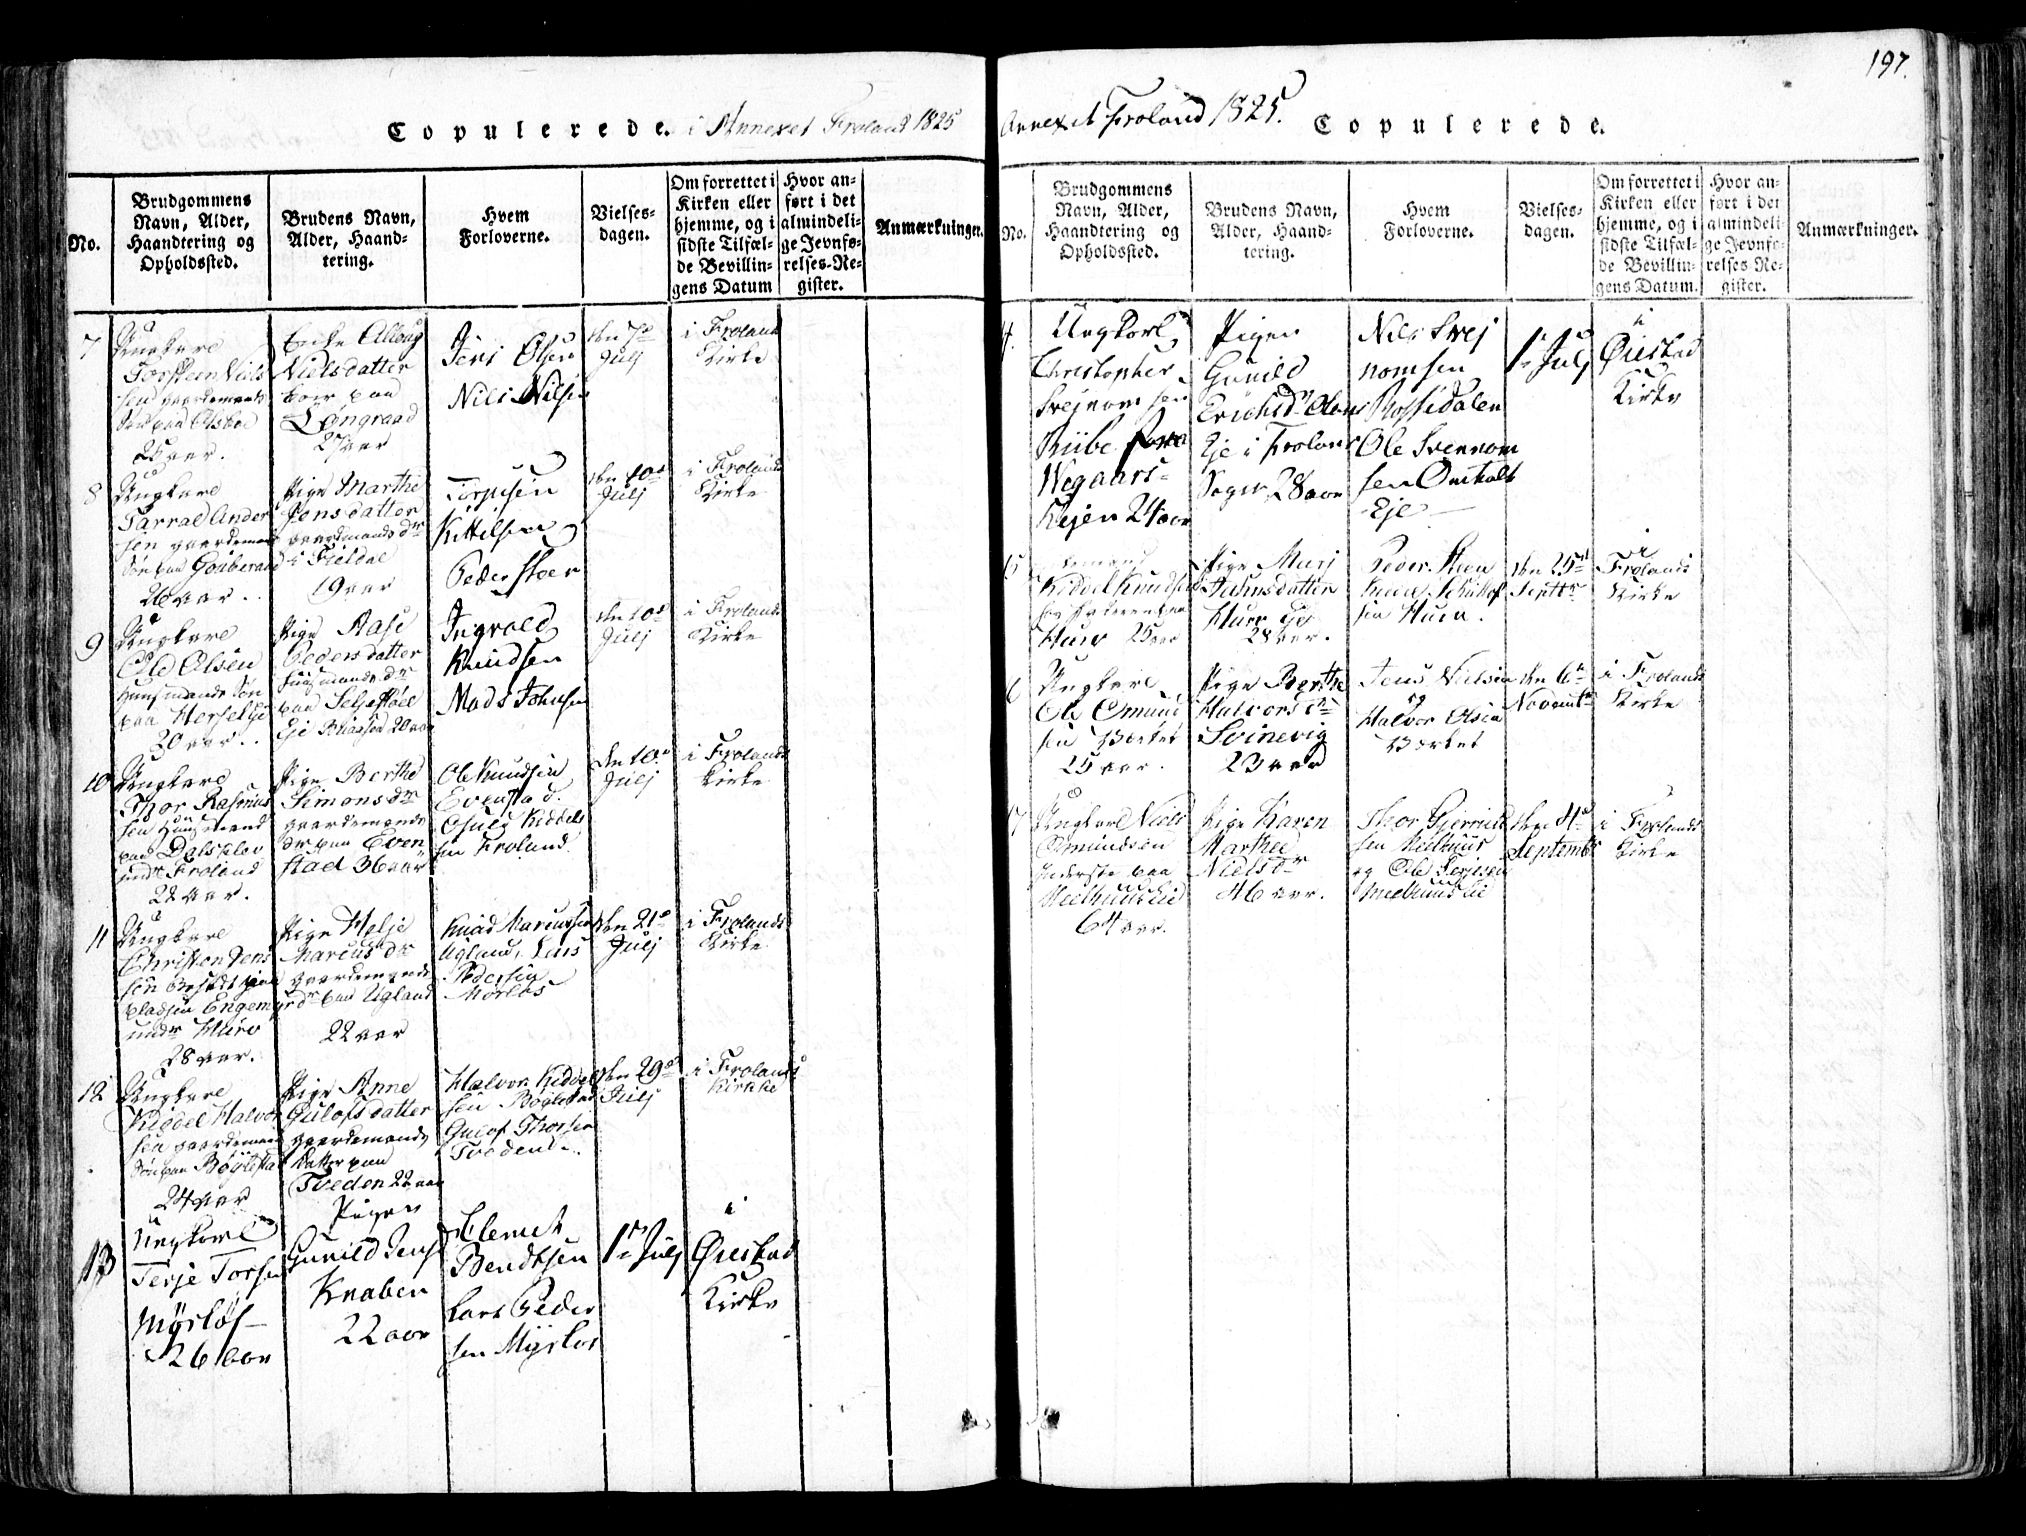 Copulerede. i Annexet Froland 1825
No.
Brudgommens
Navn, Alder,
Haandtering og
Opholdssted.
Brudens Navn,
Alder, Haand-
tering.
Hvem
Forloverne.
Vielses-
dagen.
Om forrettet i
Kirken eller
hjemme, og i
sidste Tilfæl-
de Bevillin-
gens Datum
Hvor an-
ført i det
almindeli-
ge Jevnfø-
relses-Re-
gister.
Anmærkninger.
7
Ungkarl
Torsteen Niels
sen gaardemands
Søn paa
25 aar.
Nielsdatter
paa
Løngraad
27 aar
Teri Olsen
Nils Nilsen
den 7de
Julj
i Froland
Kirke
8
Ungkarl
Tarral Ander
sen gaardemand
Søn paa
26 aar.
Pige Marthe
Jensdatter
gaardmands dr
i Fieldal
19 aar
Kittelsen
Peder
den 10de
Julj
i Frolands
Kirke
9
Ungkarl
Ole Olsen
Huusmands Søn
paa
30 aar.
Pige Aase
Pedersdatter
Huusmands dr
paa
Eje 20 aar
Ingvald
Knudsen
Mads Johnsen
den 10de
Julj
i Frolands
Kirke
10
Ungkarl
Thor Rasmus
sen Huusmand
paa Dalsklev
undr Froland
22 aar.
Pige Berthe
Simonsdr
gaardemands
dr paa Even
stad 36 aar
Ole Knudsen
Evenstad.
Kiddels
sen Froland.
den 10de
Julj
i Frolands
Kirke
11
Ungkarl
Christen Jens
sen paa
pladsen Engemyr
undr Hurv
28 aar.
Pige Helje
Marcusdr
gaardemands
dr paa Ugland
22 aar
Knud Marcussen
Ugland, Lars
Pedersen
Mørløs
den 21de
Julj
i Frolands
Kirke
12
Ungkarl
Kiddel Halvor
sen gaardemands
Søn paa Bøylestad
24 aar
Pige Anne
Gulofsdatter
gaardemands
datter paa
Tveden 22 aar
Halvor Kiddel
sen Bøylestad
Gulof Thorsen
Tveden
den 29de
Julj
i Frolands
Kirkke
13
Ungkarl
Terje Torsen
Myrløs
26 aar
Pigen
Gunild Jensd
Knaben
22 aar
Clemet
Bendtsen
Lars Peder
sen Myrløs
1te Julj
i
Øiestad
Kirke
197.
Annexet Froland 1825. Copulerede.
No.
Brudgommens
Navn, Alder,
Haandtering og
Opholdssted.
Brudens Navn,
Alder, Haand-
tering.
Hvem
Forloverne.
Vielses-
dagen.
Om forrettet i
Kirken eller
hjemme, og i
sidste Tilfæl-
de Bevillin-
gens Datum.
Hvor an-
ført i det
almindeli-
ge Jevnfø-
relses Re-
gister.
Anmærkninger.
4.
Ungkarl
Christopher
Svejnom sen
Riibe fra
Wegaars-
hejen 24 aar
Pigen
Gunild
Erichsdr
Eje i Froland
Sogn 28 aar
Nils Svej
nomsen
Rossedalen
Ole Svennom
sen Omholt
Eje
1te Julj
i
Øiestad
Kirke
15
Kiddel Knudsen
Hurv 25 aar
Pige Marj
Jahnsdatter
Hurv Eje
28 aar.
Peder
sen Hurv.
den 25de
Septbr
i
Frolands
Kirke
6
Ungkarl
Ole Omund
sen Børket
25 aar.
Pige Berthe
Halvorsdr
Svinevig
23 aar
Jens Nielsen
og
Halvor Olsen
Børket
den 6te
Novembr
i Frolands
Kirke
17
Ungkarl Niels
Omundsen
Inderste paa
64 aar.
Pige Karen
Marthee
Nielsdr
46 aar.
Thor
sen
og Ole Terjesen
den 4de
Septembr
i Frolands
Kirke